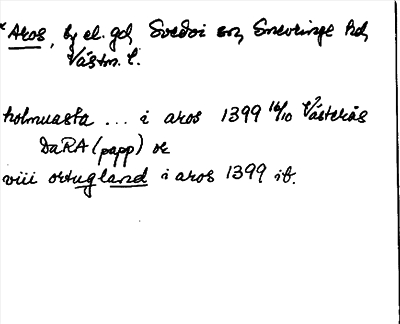 * Aros, by el. gd, Svedvi sn, Snevringe hd,
Västm. l.
holmuasta ... i aros 1399 16/10 Västerås
DaRA (papp) or
viii ortugland i aros 1399 ib.